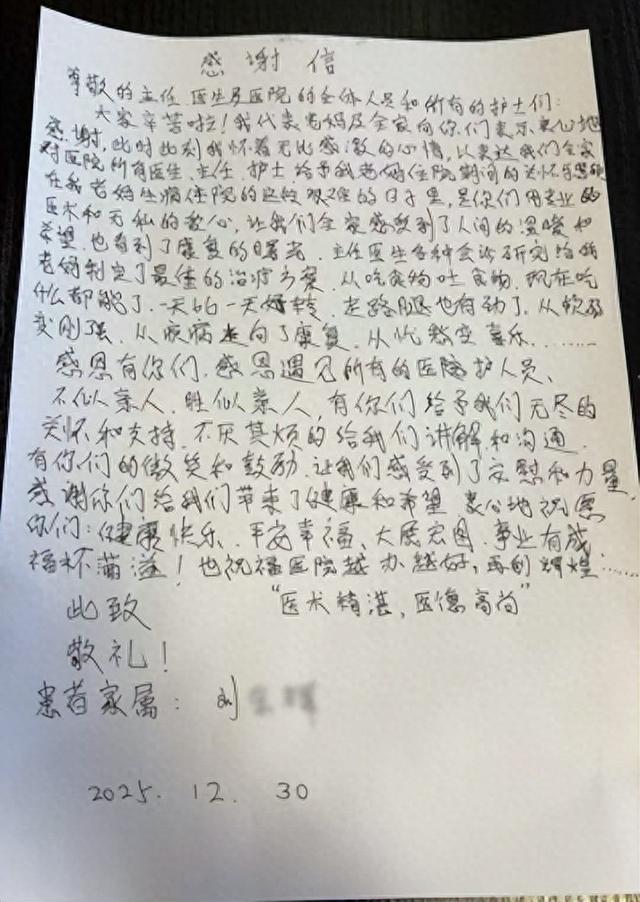 感谢信
尊敬的主任医生及医院的全体人员和所有的护士们:
大家辛苦啦!我代表老妈及全家向你们表示衷心地
感谢,此时此刻我怀着无比感激的心情,以表达我们全家
对医院所有医生、主任、护士给予我老妈住院期间的关怀
在我老妈生病住院的这段艰难的日子里,是你们用专业的
医术和无私的爱心,让我们全家感受到了人间的温暖和
希望,也看到了康复的曙光。主任医生各种会诊研究给我
老妈制定了最佳的治疗方案,从吃食物吐食物,现在吃
什么都能了.一天比一天好转,走路腿也有劲了,从软弱
变刚强,从疾病走向了康复,从忧愁变喜乐………
感恩有你们.感恩遇见所有的医院护人员、
不似亲人,胜似亲人,有你们给予我们无尽的
关怀和支持,不厌其烦的给我们讲解和沟通.
有你们的微笑和鼓励,让我们感受到了安慰和力量,
感谢你们给我们带来了健康和希望 衷心地祝愿
你们:健康快乐、平安幸福、大展宏图、事业有成,
福杯满溢!也祝福医院越办越好,再创辉煌……
此致 “医术精湛,医德高尚”
敬礼!
患者家属:刘
2025.12.30